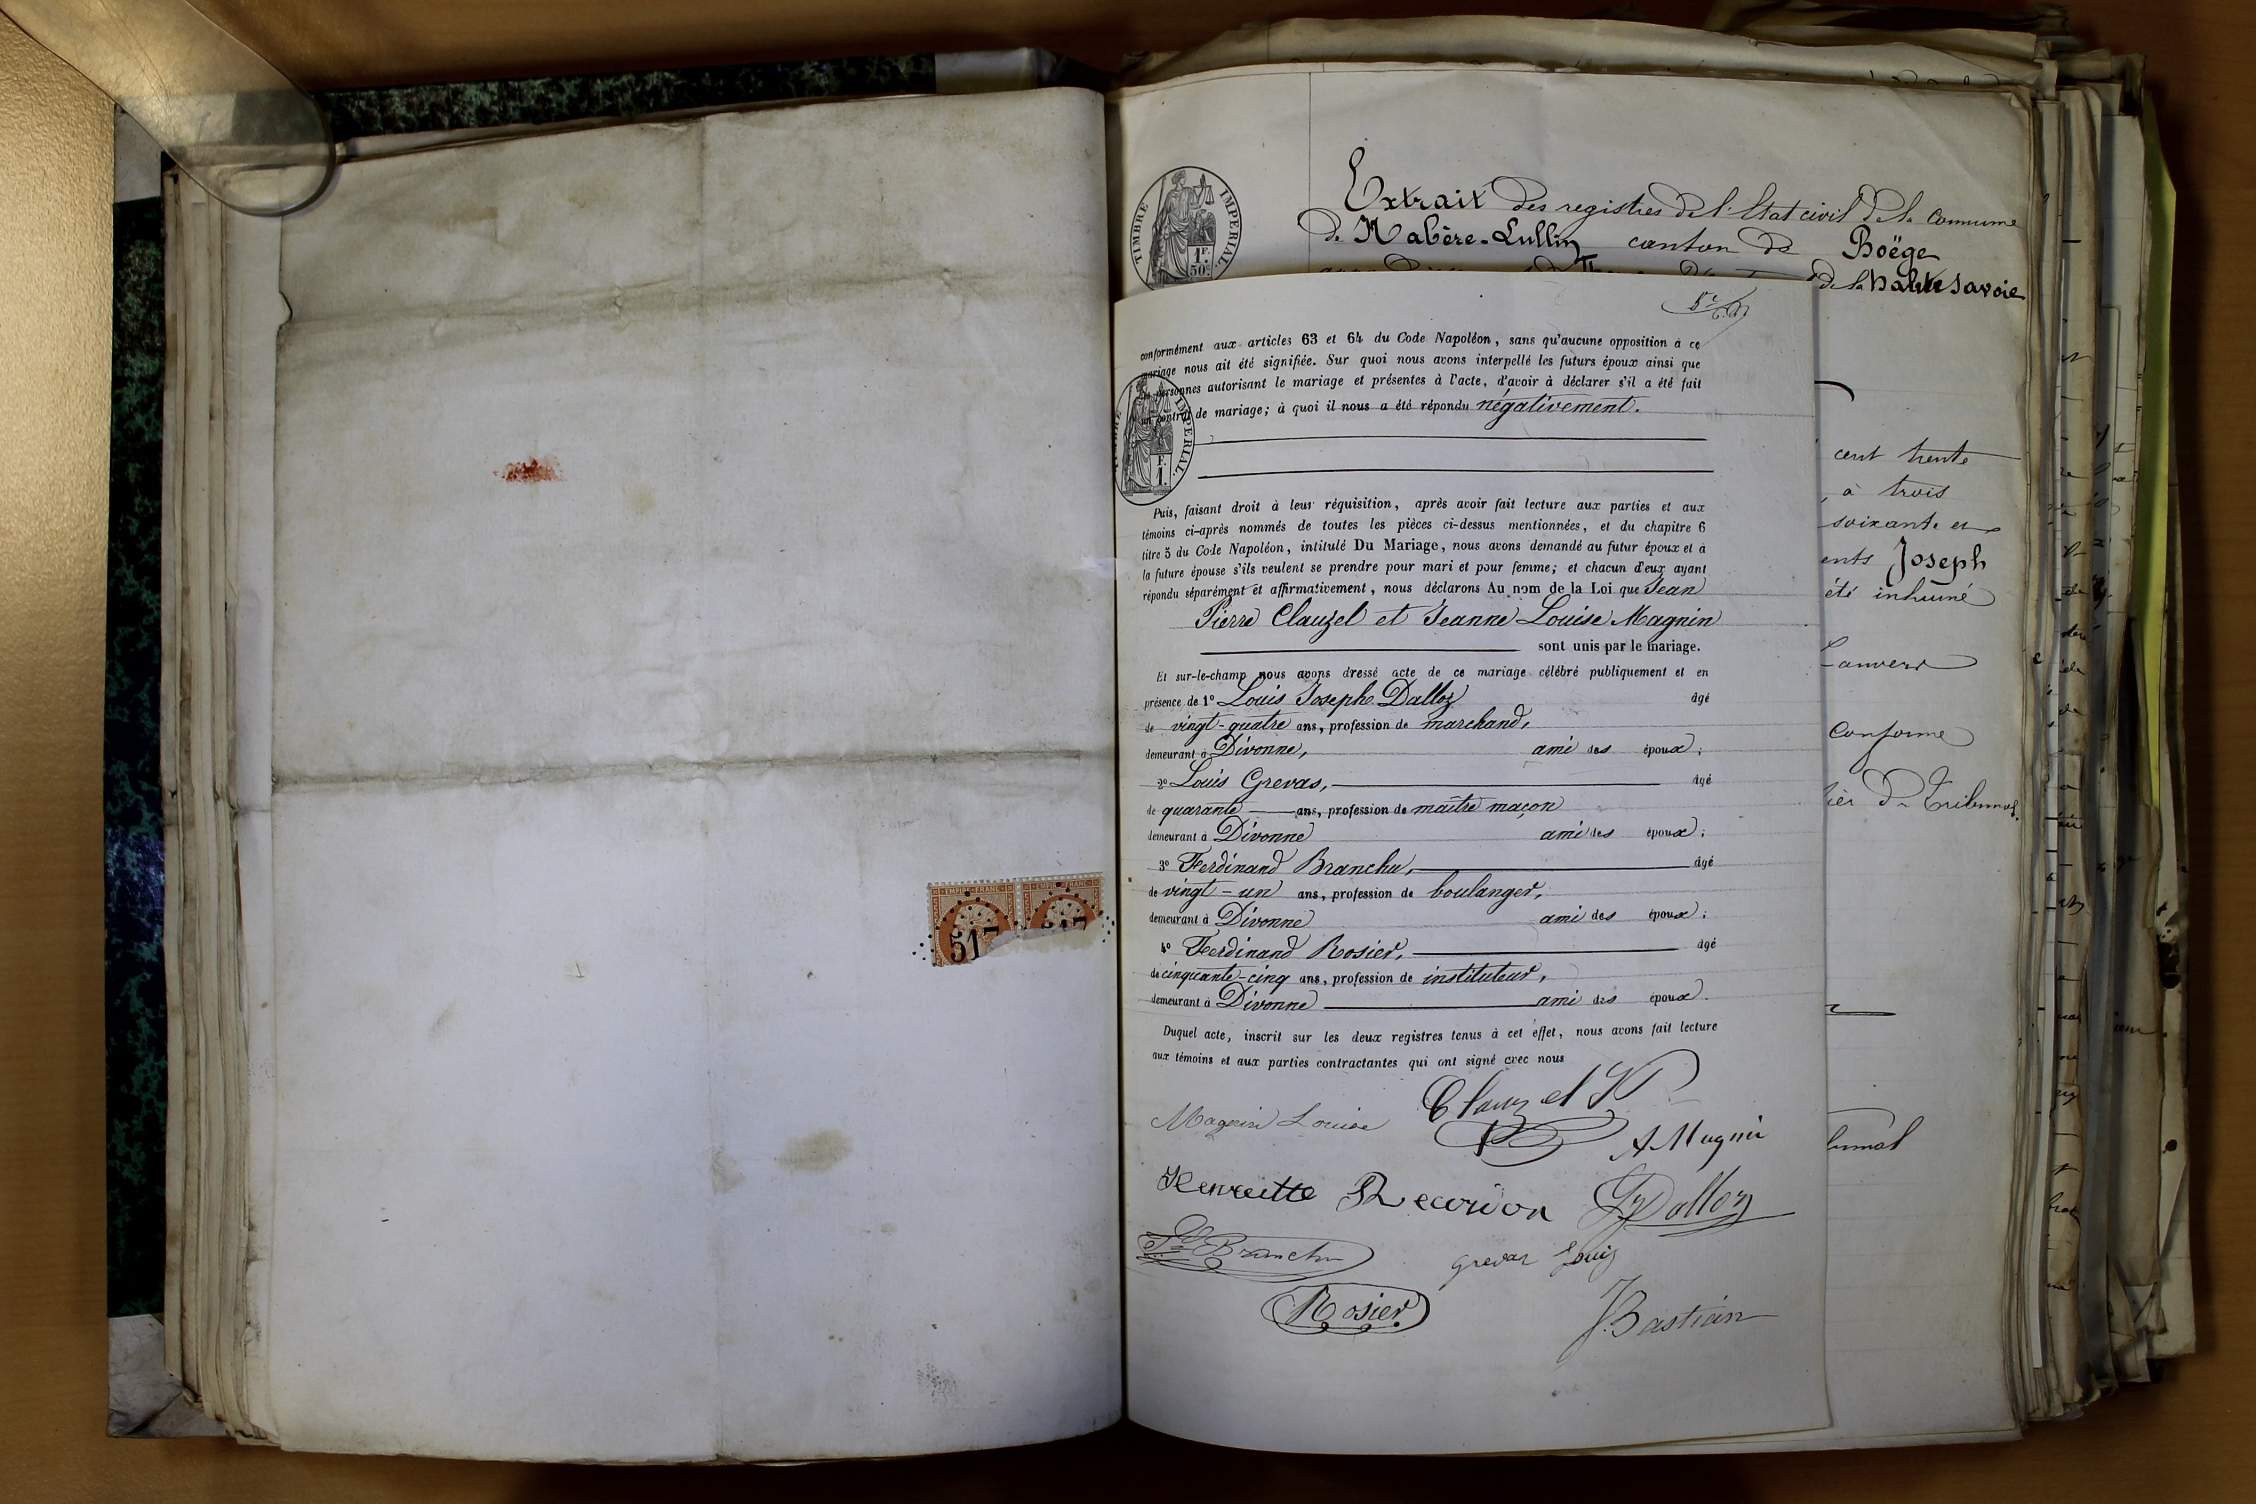 EMPIRE FRANC
EMPIRE FRANC
517
TIMBRE IMPERIAL
1F.
50c.
Extrait des registres de l'Etat civil de la Commune
de Habère-Lullin canton de Boëge
de la haute Savoie
conformément aux articles 63 et 64 du Code Napoléon, sans qu'aucune opposition à ce
mariage nous ait été signifiée. Sur quoi nous avons interpellé les futurs époux ainsi que
les personnes autorisant le mariage et présentes à l'acte, d'avoir à déclarer s'il a été fait
un contrat de mariage; à quoi il nous a été répondu négativement.
IMPERIAL
F.
1.
Puis, faisant droit à leur réquisition, après avoir fait lecture aux parties et aux
témoins ci-après nommés de toutes les pièces ci-dessus mentionnées, et du chapitre 6
titre 5 du Code Napoléon, intitulé Du Mariage, nous avons demandé au futur époux et à
la future épouse s'ils veulent se prendre pour mari et pour femme; et chacun d'eux ayant
répondu séparément et affirmativement, nous déclarons Au nom de la Loi que Jean
Pierre Clauzel et Jeanne Louise Magnin
sont unis par le mariage.
Et sur-le-champ nous avons dressé acte de ce mariage célébré publiquement et en
présence de 1° Louis Joseph Dalloz âgé
de vingt-quatre ans, profession de marchand,
demeurant à Divonne, ami des époux;
2° Louis Grevas, âgé
de quarante ans, profession de maître maçon
demeurant à Divonne ami des époux;
3° Ferdinand Branchu, âgé
de vingt-un ans, profession de boulanger,
demeurant à Divonne ami des époux;
4° Ferdinand Rosier, âgé
de cinquante-cinq ans, profession de instituteur,
demeurant à Divonne ami des époux.
Duquel acte, inscrit sur les deux registres tenus à cet effet, nous avons fait lecture
aux témoins et aux parties contractantes qui ont signé avec nous
Clauzel
Magnin Louise
A Magnin
Henriette Recordon
Dalloz
Branchu
Grevas Louis
Rosier
J. Bastian
cent trente
, à trois
soixante et
ents Joseph
été inhumé
Conforme
Tribunal.
bunal